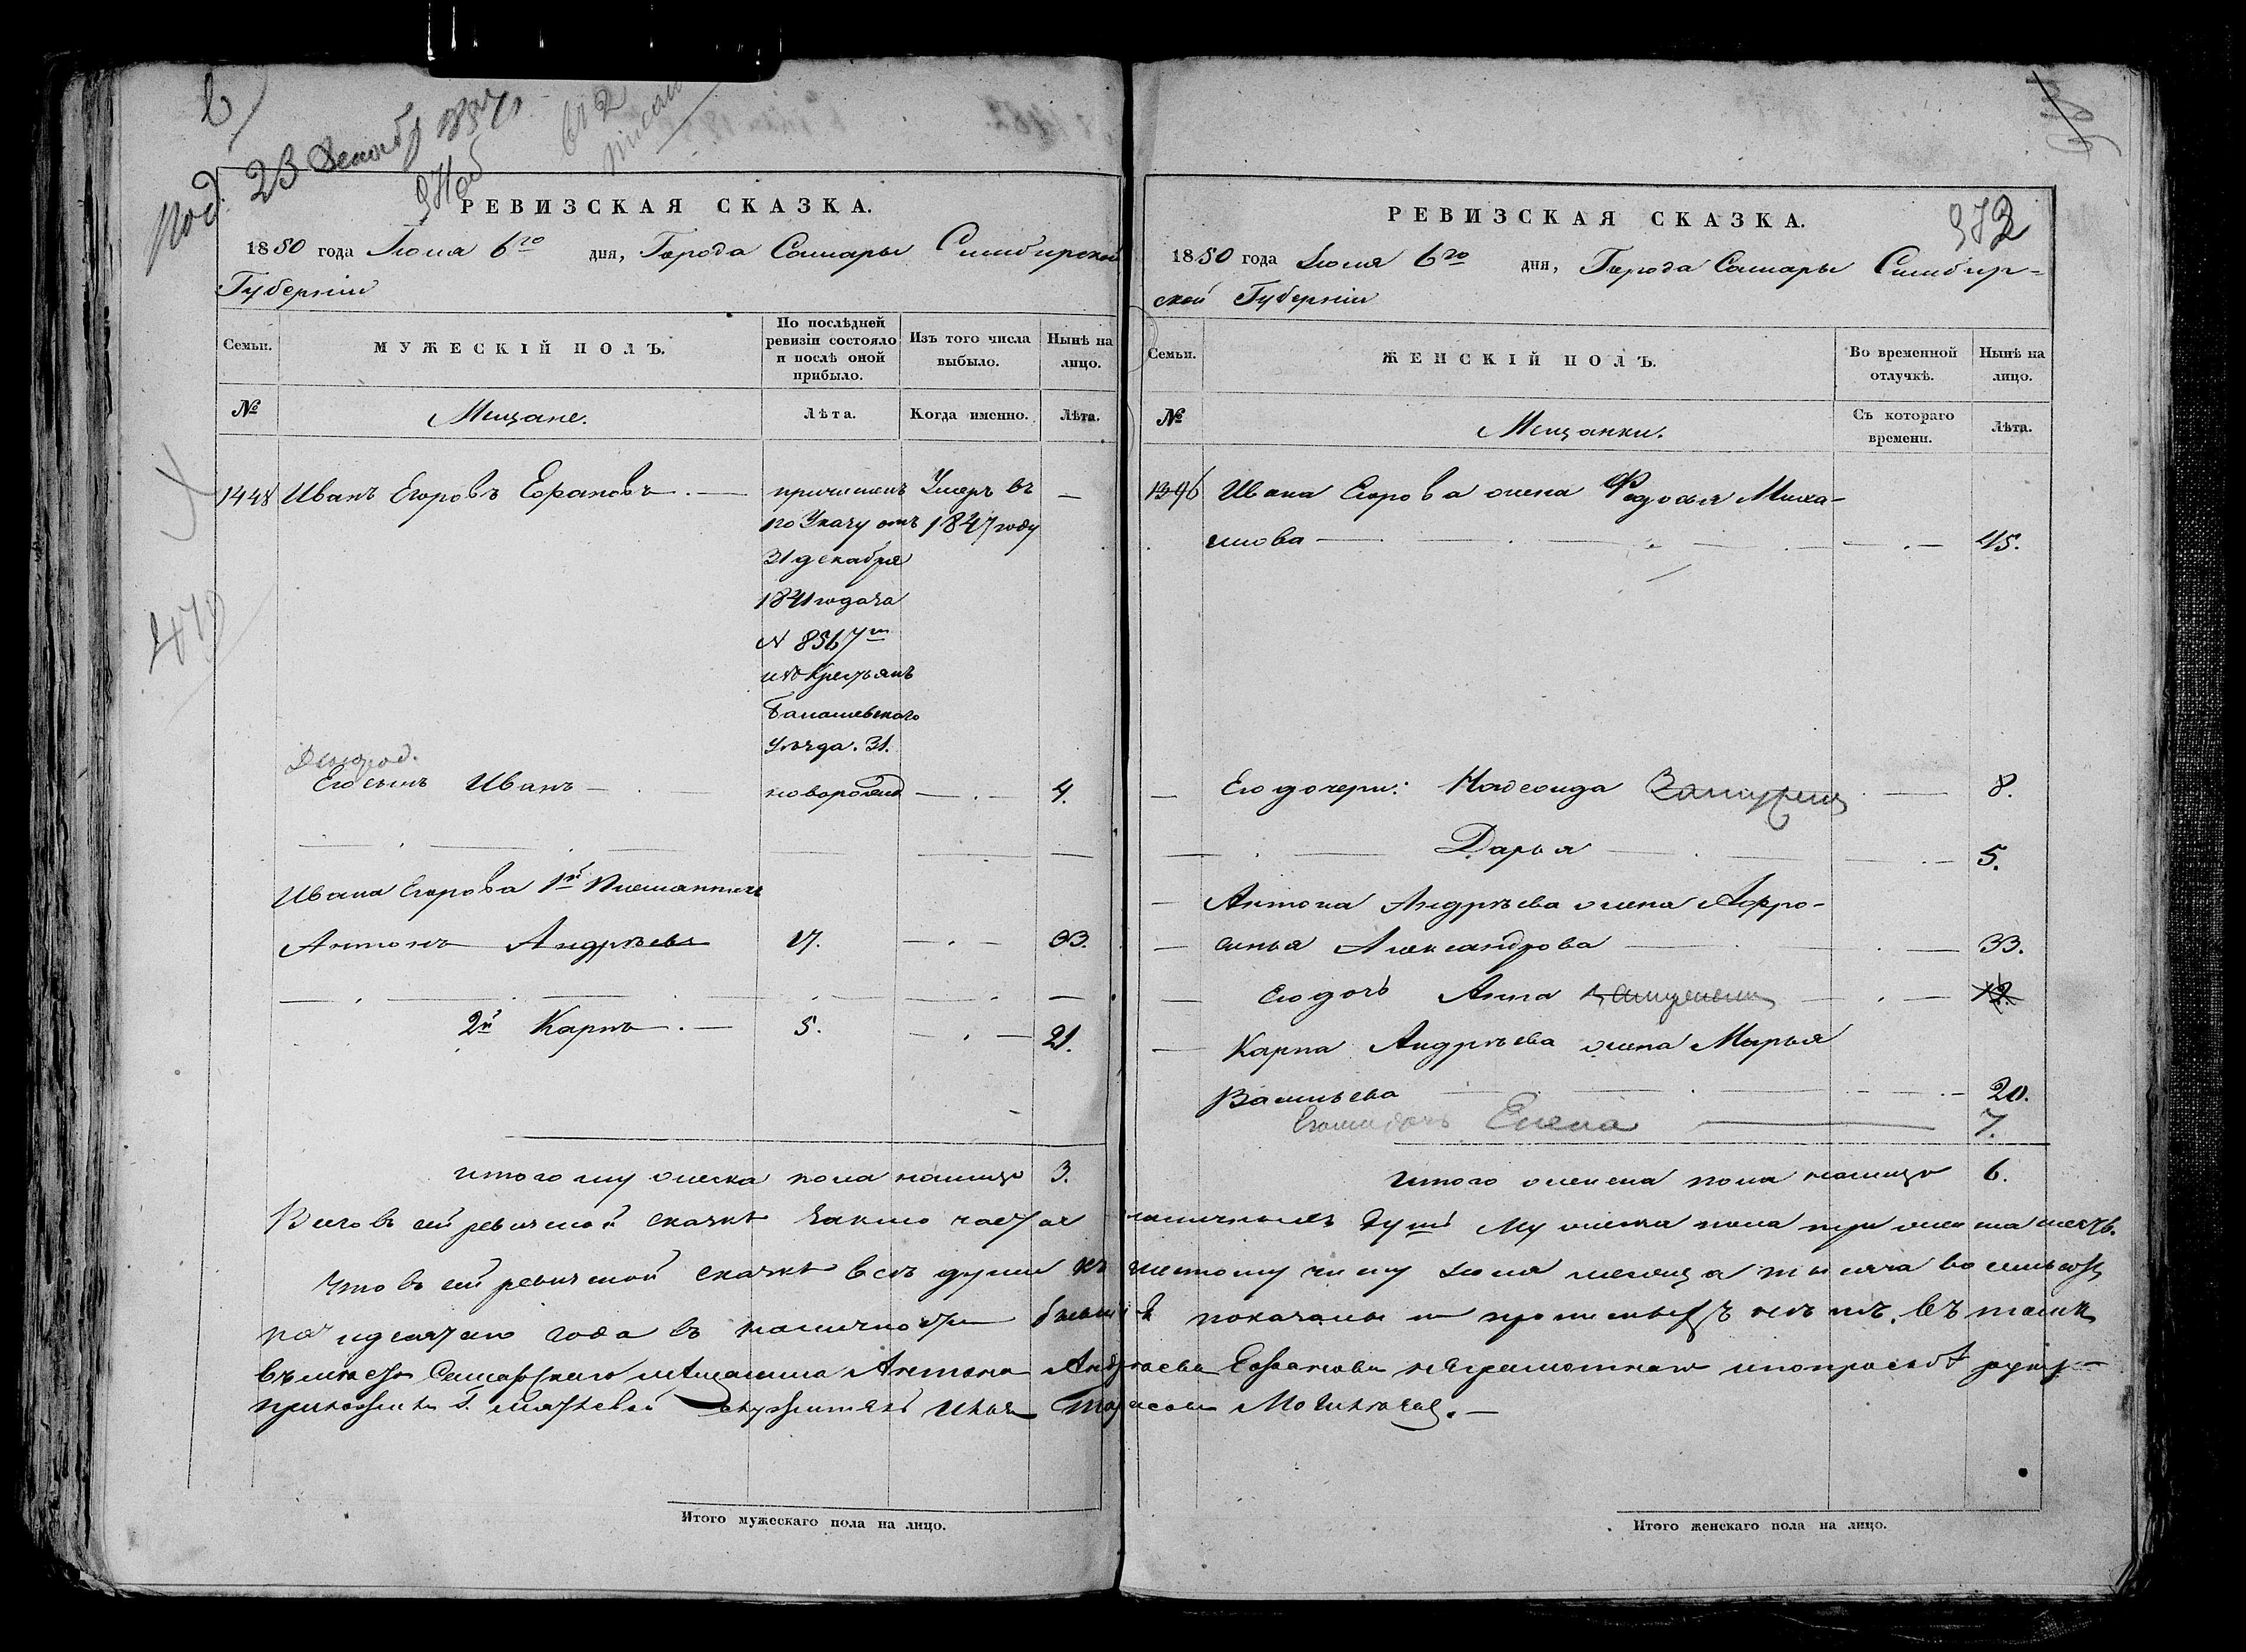 под. 23 декабр
РЕВИЗСКАЯ СКАЗКА.
1850 года Июля 6го дня, Города Самары Симбирской
Губернiи
Семьи.
МУЖЕСКІЙ ПОЛЪ.
По послѣдней
ревизіи состояло
и послѣ оной
прибыло.
Изъ того числа
выбыло.
Нынѣ на
лицо.
№
Мещане.
Лѣта.
Когда именно.
Лѣта.
1448 Иванъ Егоровъ Ефановъ. —
причисленъ
по Указу отъ
31 декабря
1841 года за
N 8567м
изъ Крестьянъ
Балашевского
Уезда. 31.
Умеръ въ
1847 году
—
Его сынъ Иванъ — новорожд — 4.
Ивана Егорова 1й племянникъ
Антонъ Андрѣевъ 17. — 33.
2й Карпъ. — 5. — 21.
итого мужеска пола налицо 3.
РЕВИЗСКАЯ СКАЗКА.
373
1850 года Июля 6го дня, Города Самары Симбир-
ской Губернiи
Семьи.
ЖЕНСКІЙ ПОЛЪ.
Во временной
отлучкѣ.
Нынѣ на
лицо.
№
Мещанки.
Съ котораго
времени.
Лѣта.
Ивана Егорова жена Федосья Миха-
илова — 45.
Его дочери: Надежида Замужемъ — 8.
Дарья — 5.
Антона Андрѣева жена Афро-
синья Александрова — 33.
Его дочь Анна замужемъ — 12.
Карпа Андрѣева жена Марья
Васильева — 20.
Елена — 7.
Итого женска пола налицо 6.
Всего въ сей ревизской сказкѣ наличныхъ душъ мужеска пола три женска шесть.
Что въ сей ревизской сказкѣ всѣ души къ шестому числу Июля месяца тысяча восемьсотъ
пятидесятаго года въ наличности бывшiе показаны и прописныхъ нетъ. въ томъ
вместо Самарского мещанина Антона Андреева Ефанова неграмотнаго по просьбе руку
приложилъ
Итого мужескаго пола на лицо.
Итого женскаго пола на лицо.